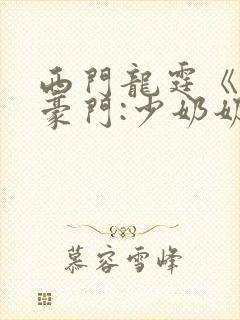 西門龍霆《
豪門:少奶奶
慕容雪峰